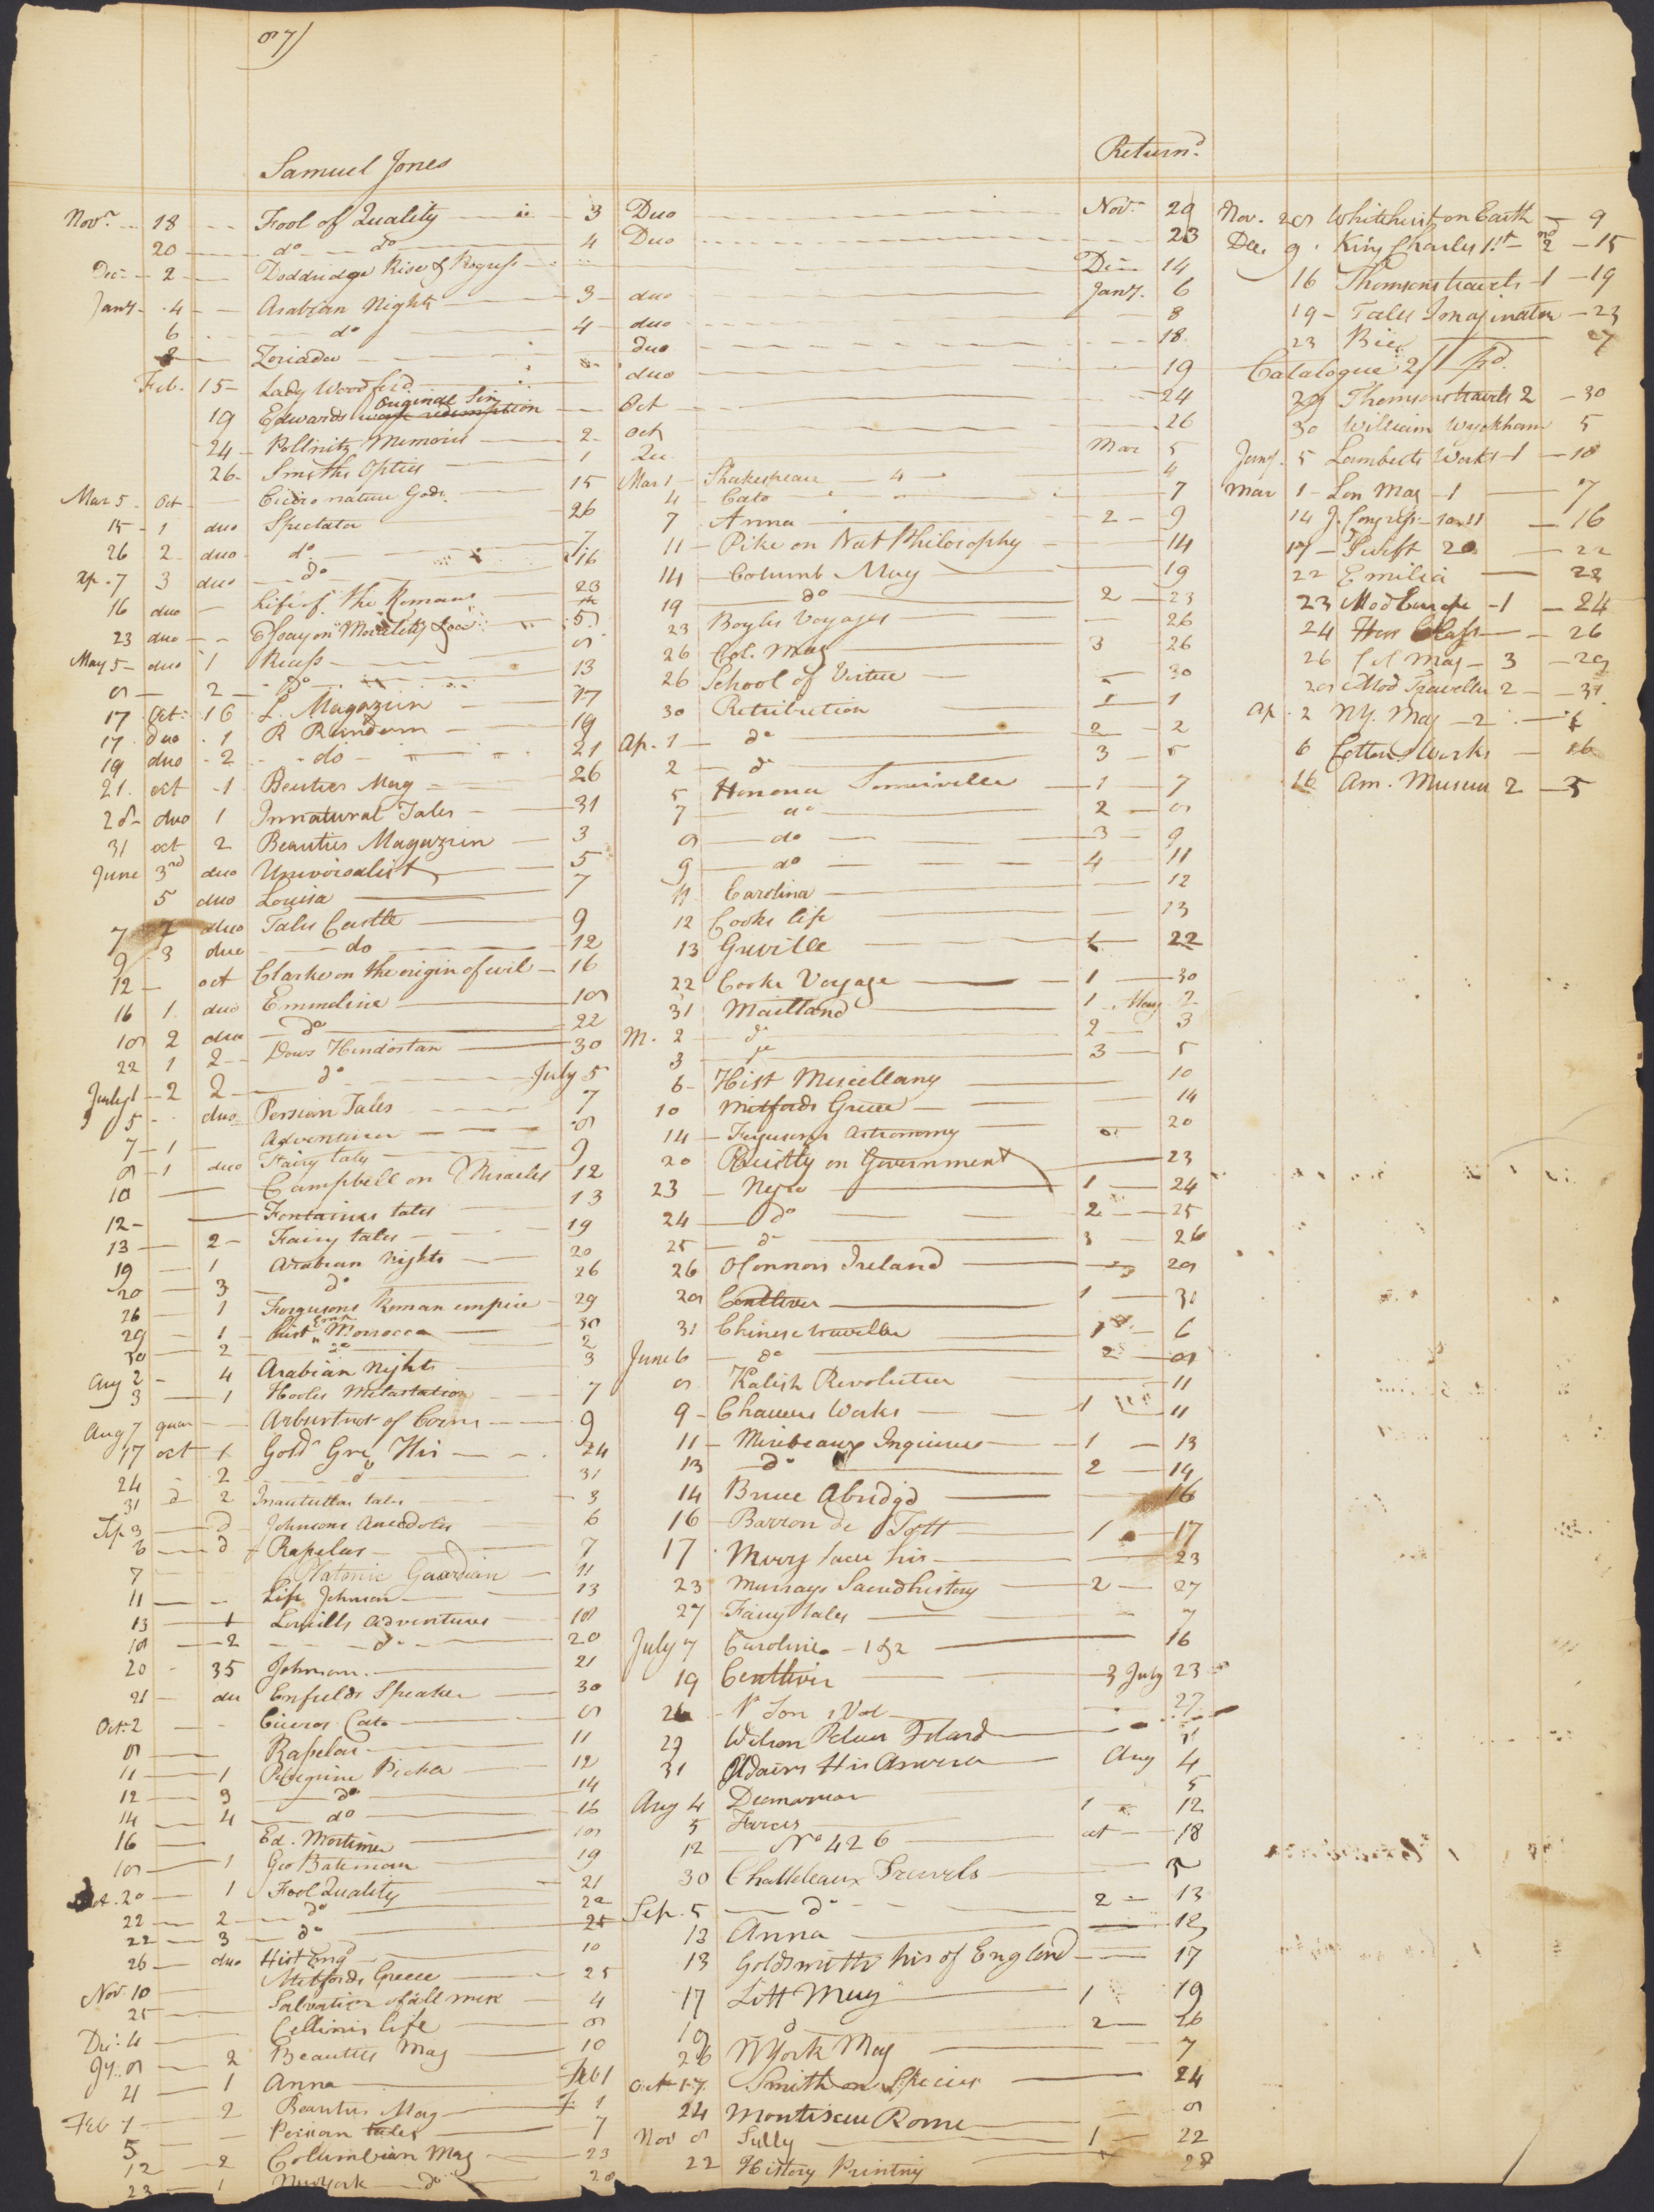 87)
Samuel Jones
Return.d
Nov.r 18 Fool of Quality 3 Duo Nov.r 20
20 do do 4 Duo 23
Dec 2 Doddridge Rise & Progress Dec 14
Jany. 4 Arabian Nights 3 duo Jany. 6
6 do 4 duo 8
8 Zoriada duo 18
Feb. 15 Lady Woodford duo 19
19 Edwards Original Sin Oct 24
24 Pollnitz Memoirs 2 Oct 26
26 Smiths Optics 1 Mar 5
Mar 5 Oct Cicero nature Gods 15
15 1 duo Spectator 26
26 2 duo do 7
Ap. 7 3 duo do 16
16 duo Life of the Romans 23
23 duo Essay on Morality 5
May 5 duo 1 Recess 8
8 2 Do 13
17 Oct 16 L. Magazin 17
17 duo 1 R Random 19
19 duo 2 do 21
21 oct 1 Beuties Mag 26
28 duo 1 Innatural Tales 31
31 oct 2 Beauties Magazin 3
June 3rd duo Universalist 5
5 duo Louisa 7
7 2 duo Tales Castle 9
9 3 duo do 12
12 oct Clarke on the origin of evil 16
16 1 duo Emmeline 18
18 2 duo do 22
22 1 2 Dows Hindostan 30
July 1 2 2 do July 5
5 duo Persian Tales 7
7 1 Adventurer 8
8 1 duo Fairy tales 9
10 Campbell on Miracles 12
12 Fontaines tales 13
13 2 Fairy tales 19
19 1 Arabian Nights 20
20 3 do 26
26 1 Fergusons Roman empire 29
29 1 Morrocca 30
30 2 do 2
Aug 2 4 Arabian Nights 3
3 1 Hooles Metastation 7
Aug 7 quar Arburtnot of Coins 9
17 oct 1 Gold Gre His 24
24 2 do 31
31 d 2 tales 3
Sep 3 d Johnsons Anecdotes 6
6 d Rapelas 7
7 Platonic Guardian 11
11 Life Johnson 13
13 1 Lovills Adventures 18
18 2 do 20
20 35 Johnson 21
21 duo Enfields Speaker 30
Oct. 2 Ciceros Cato 8
8 Rapelas 11
11 1 Peregrine Pickle 12
12 3 do 14
14 4 do 16
16 Ed. Mortimer 18
18 1 Geo Bateman 19
Oct. 20 1 Fool Quality 21
22 2 do 22
22 3 do 25
26 duo Hist Eng 10
Nov 10 Mitfords Greece 25
25 Salvation of all men 4
Dec. 4 Cellinis life 8
Jy. 8 2 Beauties Mag 10
21 1 Anna Feb 1
Feb 1 2 Beauties Mag
5 Persian tales 7
12 2 Columbian Mag 23
23 1 Newyork do 28
Mar 1 Shakespeare 4 4
4 Cato 7
7 Anna 2 9
11 Pike on Nat Philosophy 14
14 Columb Mag 19
19 do 2 23
23 Boyles Voyages 26
26 Col. Mag 3 26
26 School of Virtue 30
30 Retribution 1 1
Ap. 1 do 2 2
2 do 3 5
5 Honoria Somerville 1 7
7 do 2 8
8 do 3 9
9 do 4 11
11 Carolina 12
12 Cooks life 13
13 Greville 22
22 Cooke Voyage 1 30
31 Maitland 1 May 2
M. 2 do 2 3
3 do 3 5
6 Hist Miscellany 10
10 Mitfords Greece 14
14 Fergusons Astronomy 20
20 Priestly on Government 23
23 Negro 1 24
24 do 2 25
25 do 3 26
26 OConnors Ireland 28
28 Centlivre 1 31
31 Chinese traveller 1 6
June 6 do 2 8
8 Polish Revolution 11
9 Chaucers Works 1 11
11 Mirabeaux Inquiries 1 13
13 do 2 14
14 Bruce Abridgd 16
16 Barron de Tott 1 17
17 23
23 Murrays Sacred history 2 27
27 Fairy tales 7
July 7 Caroline 1 & 2 16
19 Centlivir 3 July 23
26 1 Vol 27
29 Wilson Pelew Island 31
31 Adairs His America Aug 4
Aug 4 5
5 Farces 1 12
12 No 426 oct 18
30 Chatteleaux Travels 5
Sep. 5 do 2 13
13 Anna 13
13 Goldsmiths his of England 17
17 Litt Mag 1 19
19 d 2 26
26 NYork Mag 7
Oct 17 Smith on Species 24
24 Montiscue Rome 8
Nov 8 Sully 1 22
22 History Printing 28
Nov. 28 Whitehurst on Earth 9
Dec. 9 King Charles 1st 2nd 15
16 Thomsons travels 1 19
19 Tales Imagination 23
23 27
Catalogue 2/ pd.
28 Thomsons travels 2 30
30 William Wyckham 5
Jany. 5 Lambert Works 1 18
Mar 1 Lon Mag 1 7
14 J. Congress 10 & 11 16
17 Swift 20 22
22 Emilia 22
23 Mod Europe 1 24
24 26
26 Col Mag 3 28
28 Mod Traveller 2 31
Ap. 2 NY. Mag 2 6
6 Cottons Works 16
16 Am. Museum 2 5